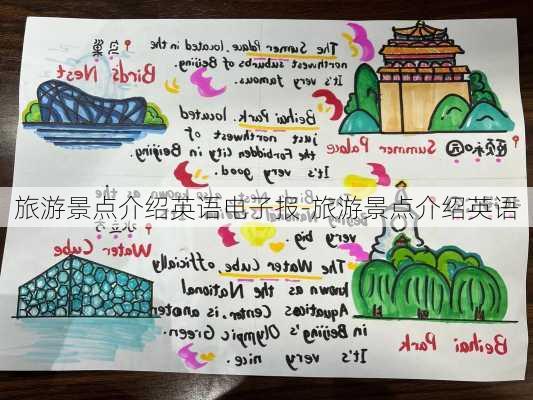 鸟巢
Bird's Nest
The Sumer Palace. located in the
northwest suburbs of Beijing.
It's very famous.
颐和园
Summer Palace
Beihai Park. located
just northwest of
the Forbidden City in Beijing.
It's very good.
also known as the
旅游景点介绍英语电子报-旅游景点介绍英语
very big.
Water Cube
The Water Cube officially
known as the National
Aquatics Center, is
in Beijing's Olympic Green.
It's very nice.
Beihai Park